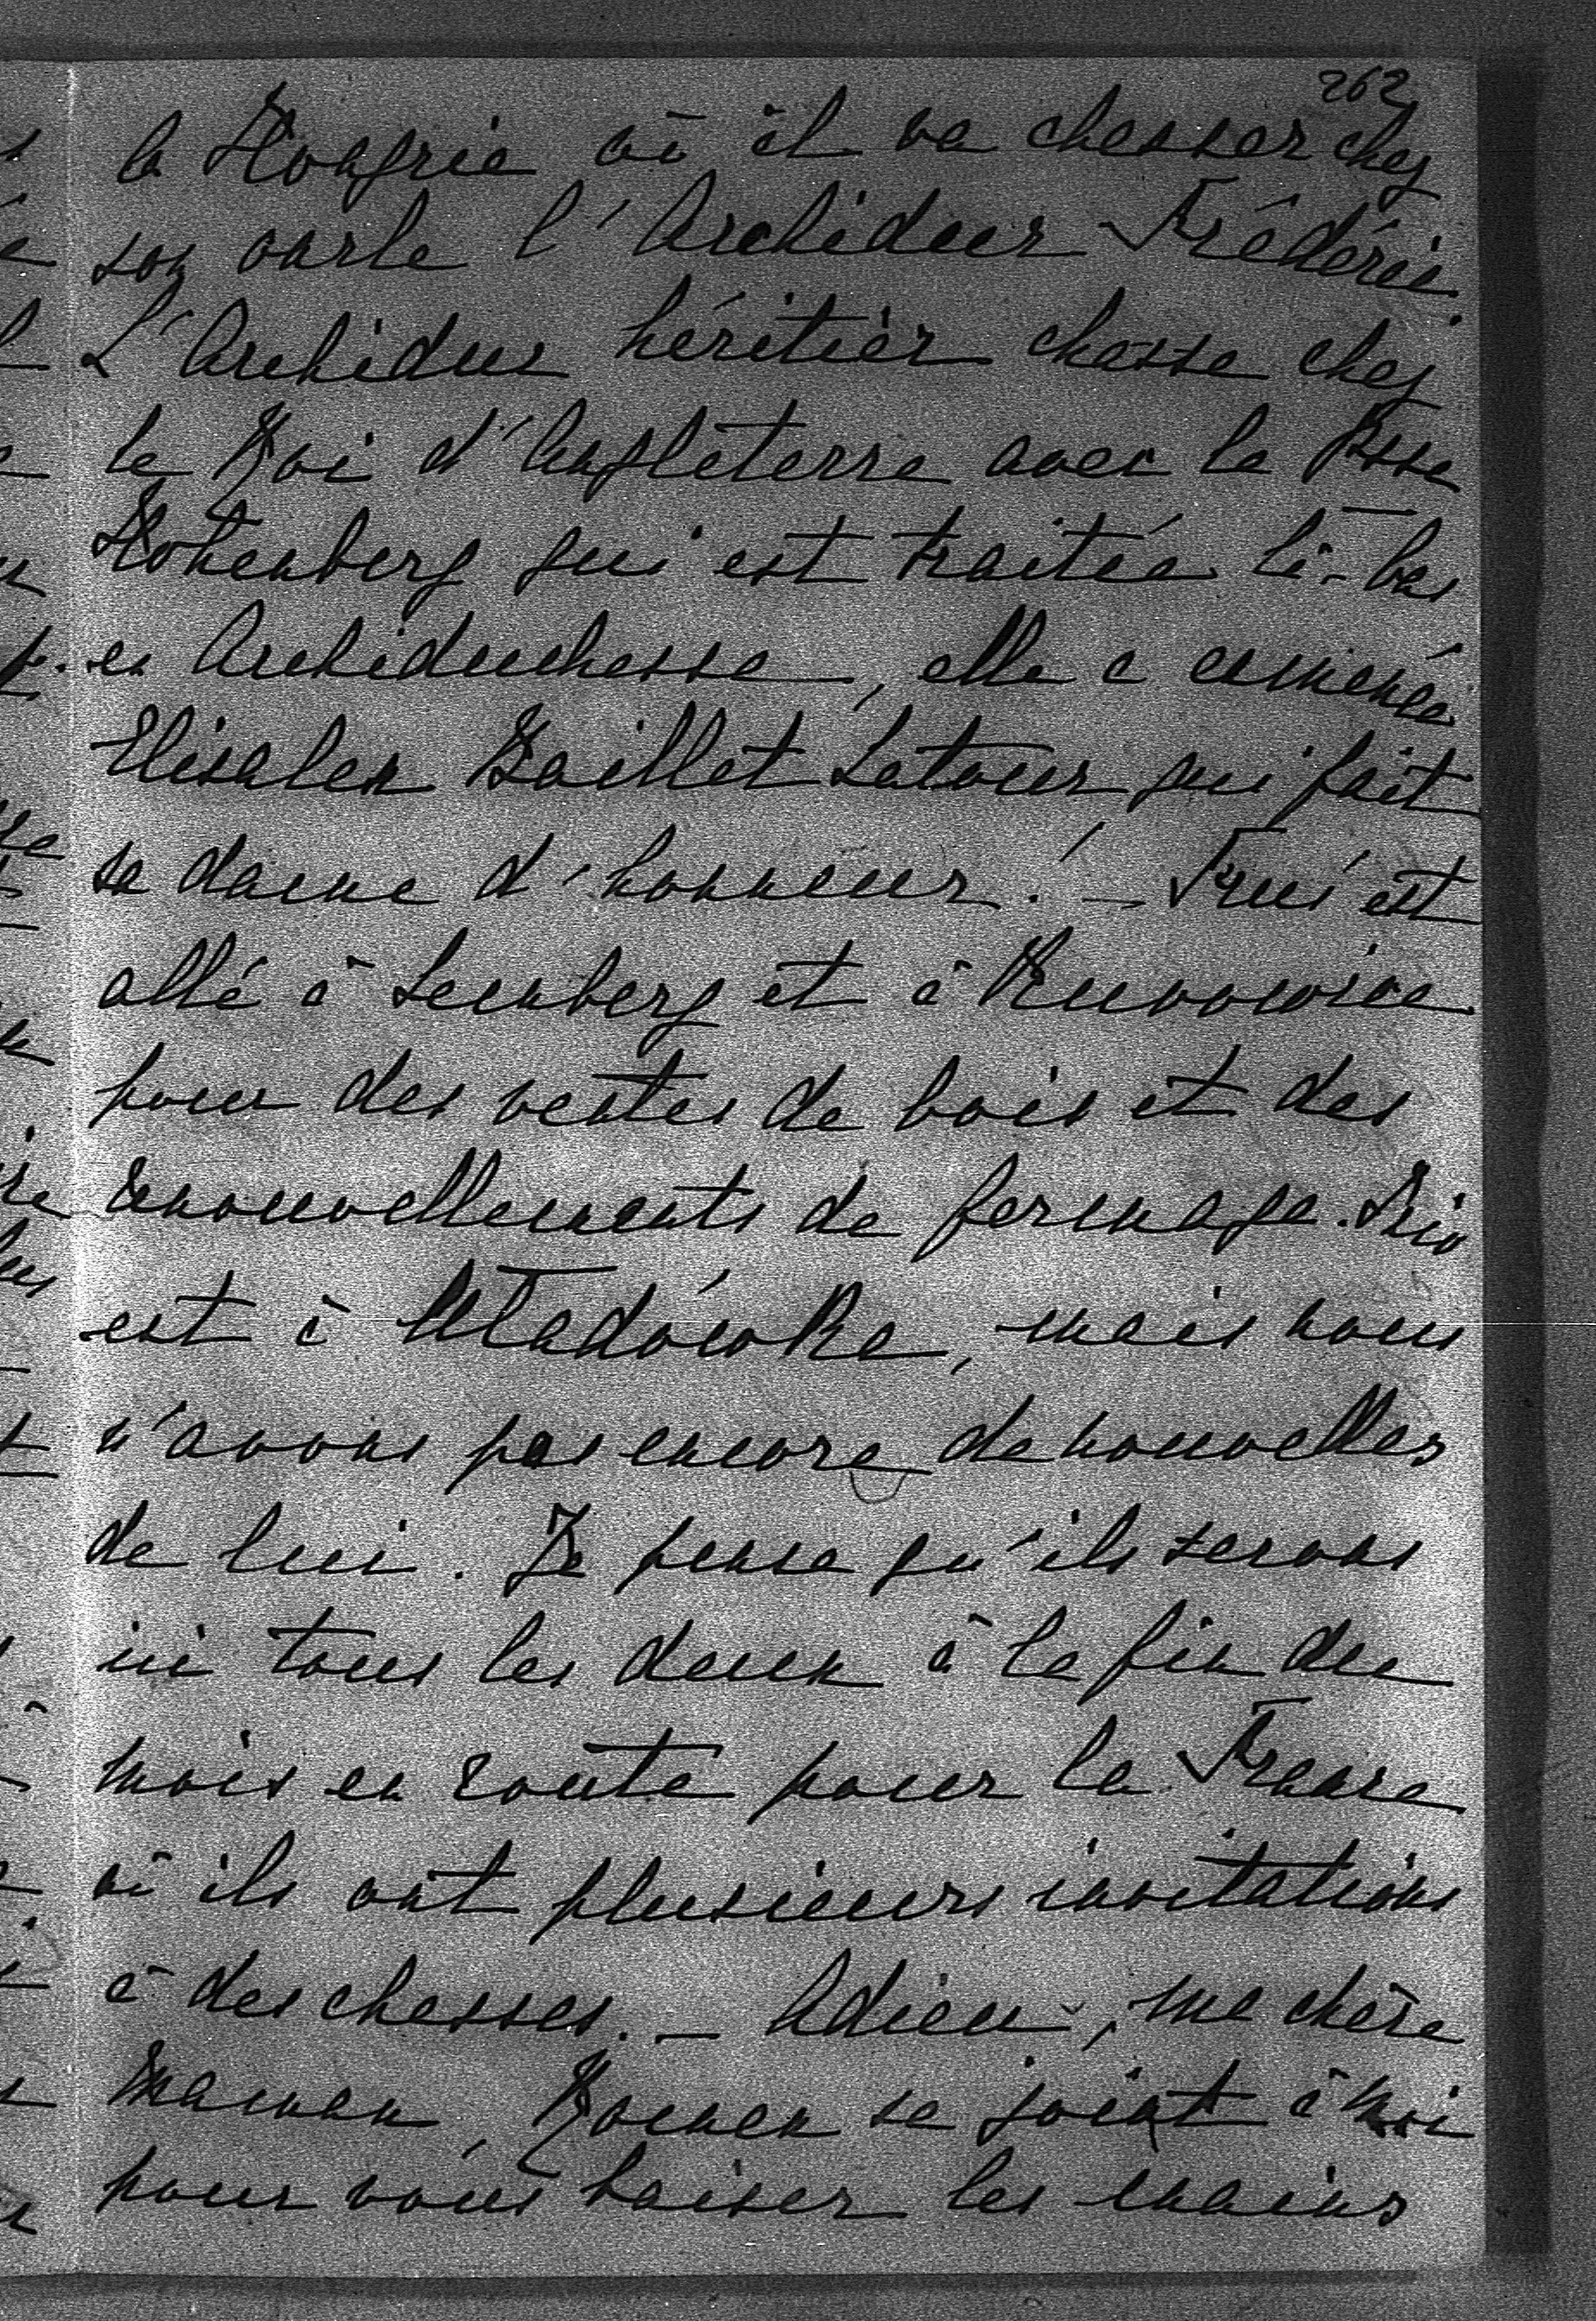 262
la Hongrie où il va chasser chez
son oncle l'Archiduc Frédéric.
L'Archiduc héritier chasse chez
le Roi d'Angleterre avec la Psse
Hohenberg qui est traitée là-bas
en Archiduchesse, elle a emmené
Elisalex Baillet Latour qui fait
sa dame d'honneur! — est
allé à Lemberg et à
pour des ventes de bois et des
renouvellements de fermage.
est à Władówka, mais nous
n'avons pas encore de nouvelles
de lui. Je pense qu'ils serons
ici tous les deux à la fin du
mois en route pour la France
où ils ont plusieurs invitations
à des chasses. — Adieu, ma chère
Maman, Roman se joint à moi
pour vous baiser les mains